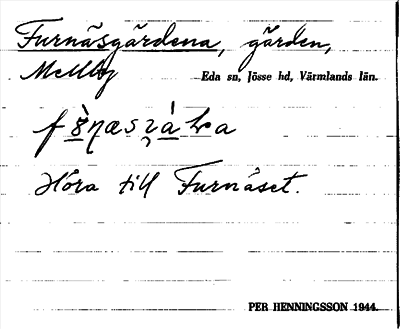 Furnäsgårdena, gården,
Mellby Eda sn, Jösse hd, Värmlands län.
Höra till Furnäset.
PER HENNINGSSON 1944.